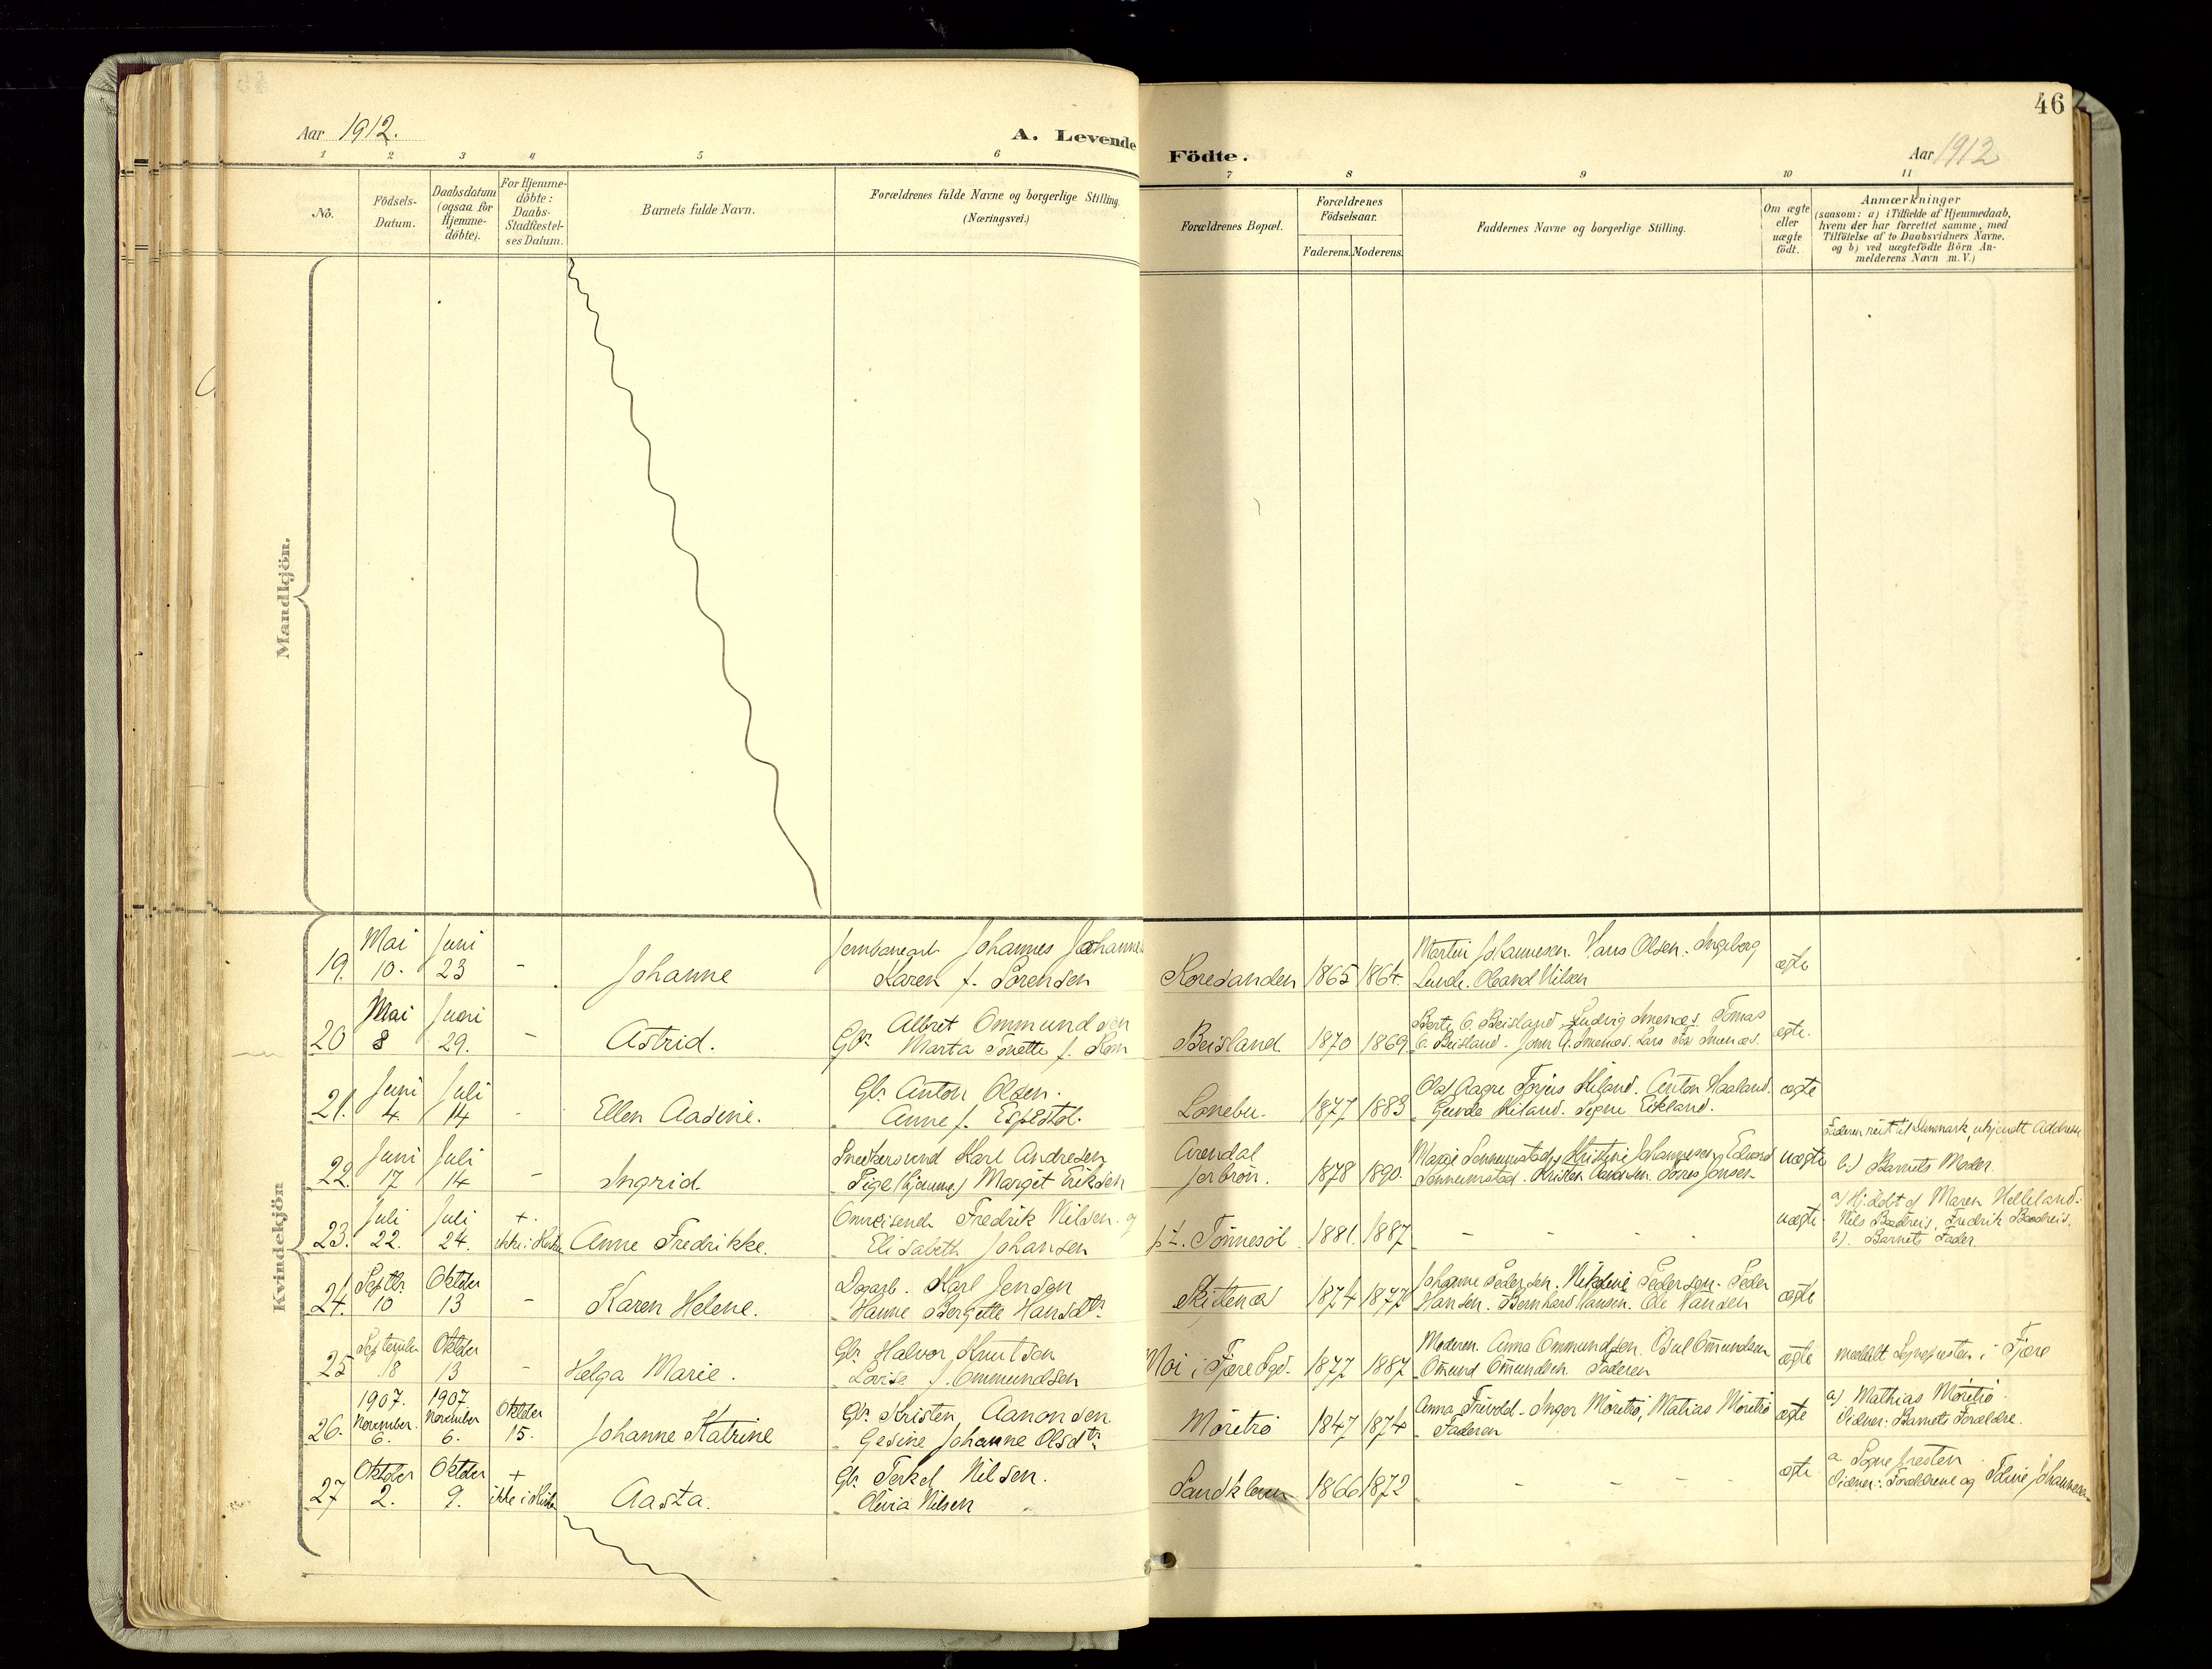 46
Aar 1912.
A. Levende
Födte.
Aar 1912
1 2 3 4 5 6
7 8 9 10 11
No.
Födsels-
Datum.
Daabsdatum
(ogsaa for
Hjemme-
döbte).
For Hjemme-
döbte:
Daabs-
Stadfæstel-
ses Datum.
Barnets fulde Navn.
Forældrenes fulde Navne og borgerlige Stilling.
(Næringsvei.)
Forældrenes Bopæl.
Forældrenes
Födselsaar.
Faderens. Moderens.
Faddernes Navne og borgerlige Stilling.
Om ægte
eller
uægte
födt.
Anmærkninger
(saasom: a) i Tilfælde af Hjemmedaab,
hvem der har forrettet samme, med
Tilföielse af to Daabsvidners Navne,
og b) ved uægtefödte Börn An-
melderens Navn m. V.)
Mandkjön.
Kvindekjön
19. Mai 10. Juni 23 - Johanne
Johannes
Karen f. Sørensen
1865 1864.
Martin Johannesen. Hans Olsen. Ingeborg
Lunde. Nilsen
ægte
20 Mai 8 Juni 29. - Astrid.
Gbr. Albret Ommundsen
Marta Tonette f.
Beisland. 1870 1869
Berte O. Beisland. Ludvig Tomas
O. Beisland.
ægte.
21. Juni 4. Juli 14 - Ellen Aasine.
Gbr. Anton Olsen.
Anne f. Espestøl.
Lonebu. 1877 1883
Olaf Aagre Kiland. Anton Haaland.
Gunda Kiland. Signe Eikland.
ægte
22. Juni 17 Juli 14 - Ingrid
Karl Andresen
Pige Margit Eriksen
Arendal
1878 1890.
uægte
Faderen reist til Danmark, ukjendt Addresse
b.) Barnets Moder.
23. Juli 22. Juli 24. +. ikke i Kirken Anne Fredrikke.
Omreisende Fredrik Nilsen. og
Elisabeth Johansen
p.t. Tönnesöl 1881. 1887
- - -
uægte.
a) Hj.döbt af Maren Helleland.
Nils Fredrik
b). Barnets Fader.
24. Septbr. 10 Oktober 13 - Karen Helene.
Dagarb. Karl Jensen
Hanne Bergette Hansdtr.
1874 1877
Johanne Pedersen. Pedersen. Peder
Hansen. Bernhard Hansen. Ole Hansen
ægte
25 September 18 Oktober 13 - Helga Marie.
Gbr. Halvor Knutson
Lovise f. Ommundsen
Moi i Fjære Sgd. 1877 1887
Moderen. Anna Ommundsen. Omundsen
Omund Omundsen. Faderen
ægte
meddelt Sognepresten i Fjære
26. 1907. November. 6. 1907. November 6. Oktober 15. Johanne Katrine
Gbr. Kristen Aanonsen
Gesine Johanne Olsdtr.
Möretrö 1847 1874
Anna Inger Möretrö, Matias Möretrö
Faderen
ægte
a) Mathias Möretrö.
Vidner: Barnets Forældre.
27 Oktober 2. Oktober 9. + ikke i Kirken Aasta.
Gbr. Terkel Nilsen.
Olivia Nilsen
1866 1872
- - - -
ægte
a. Sognepresten
Vidner: Forældrene og